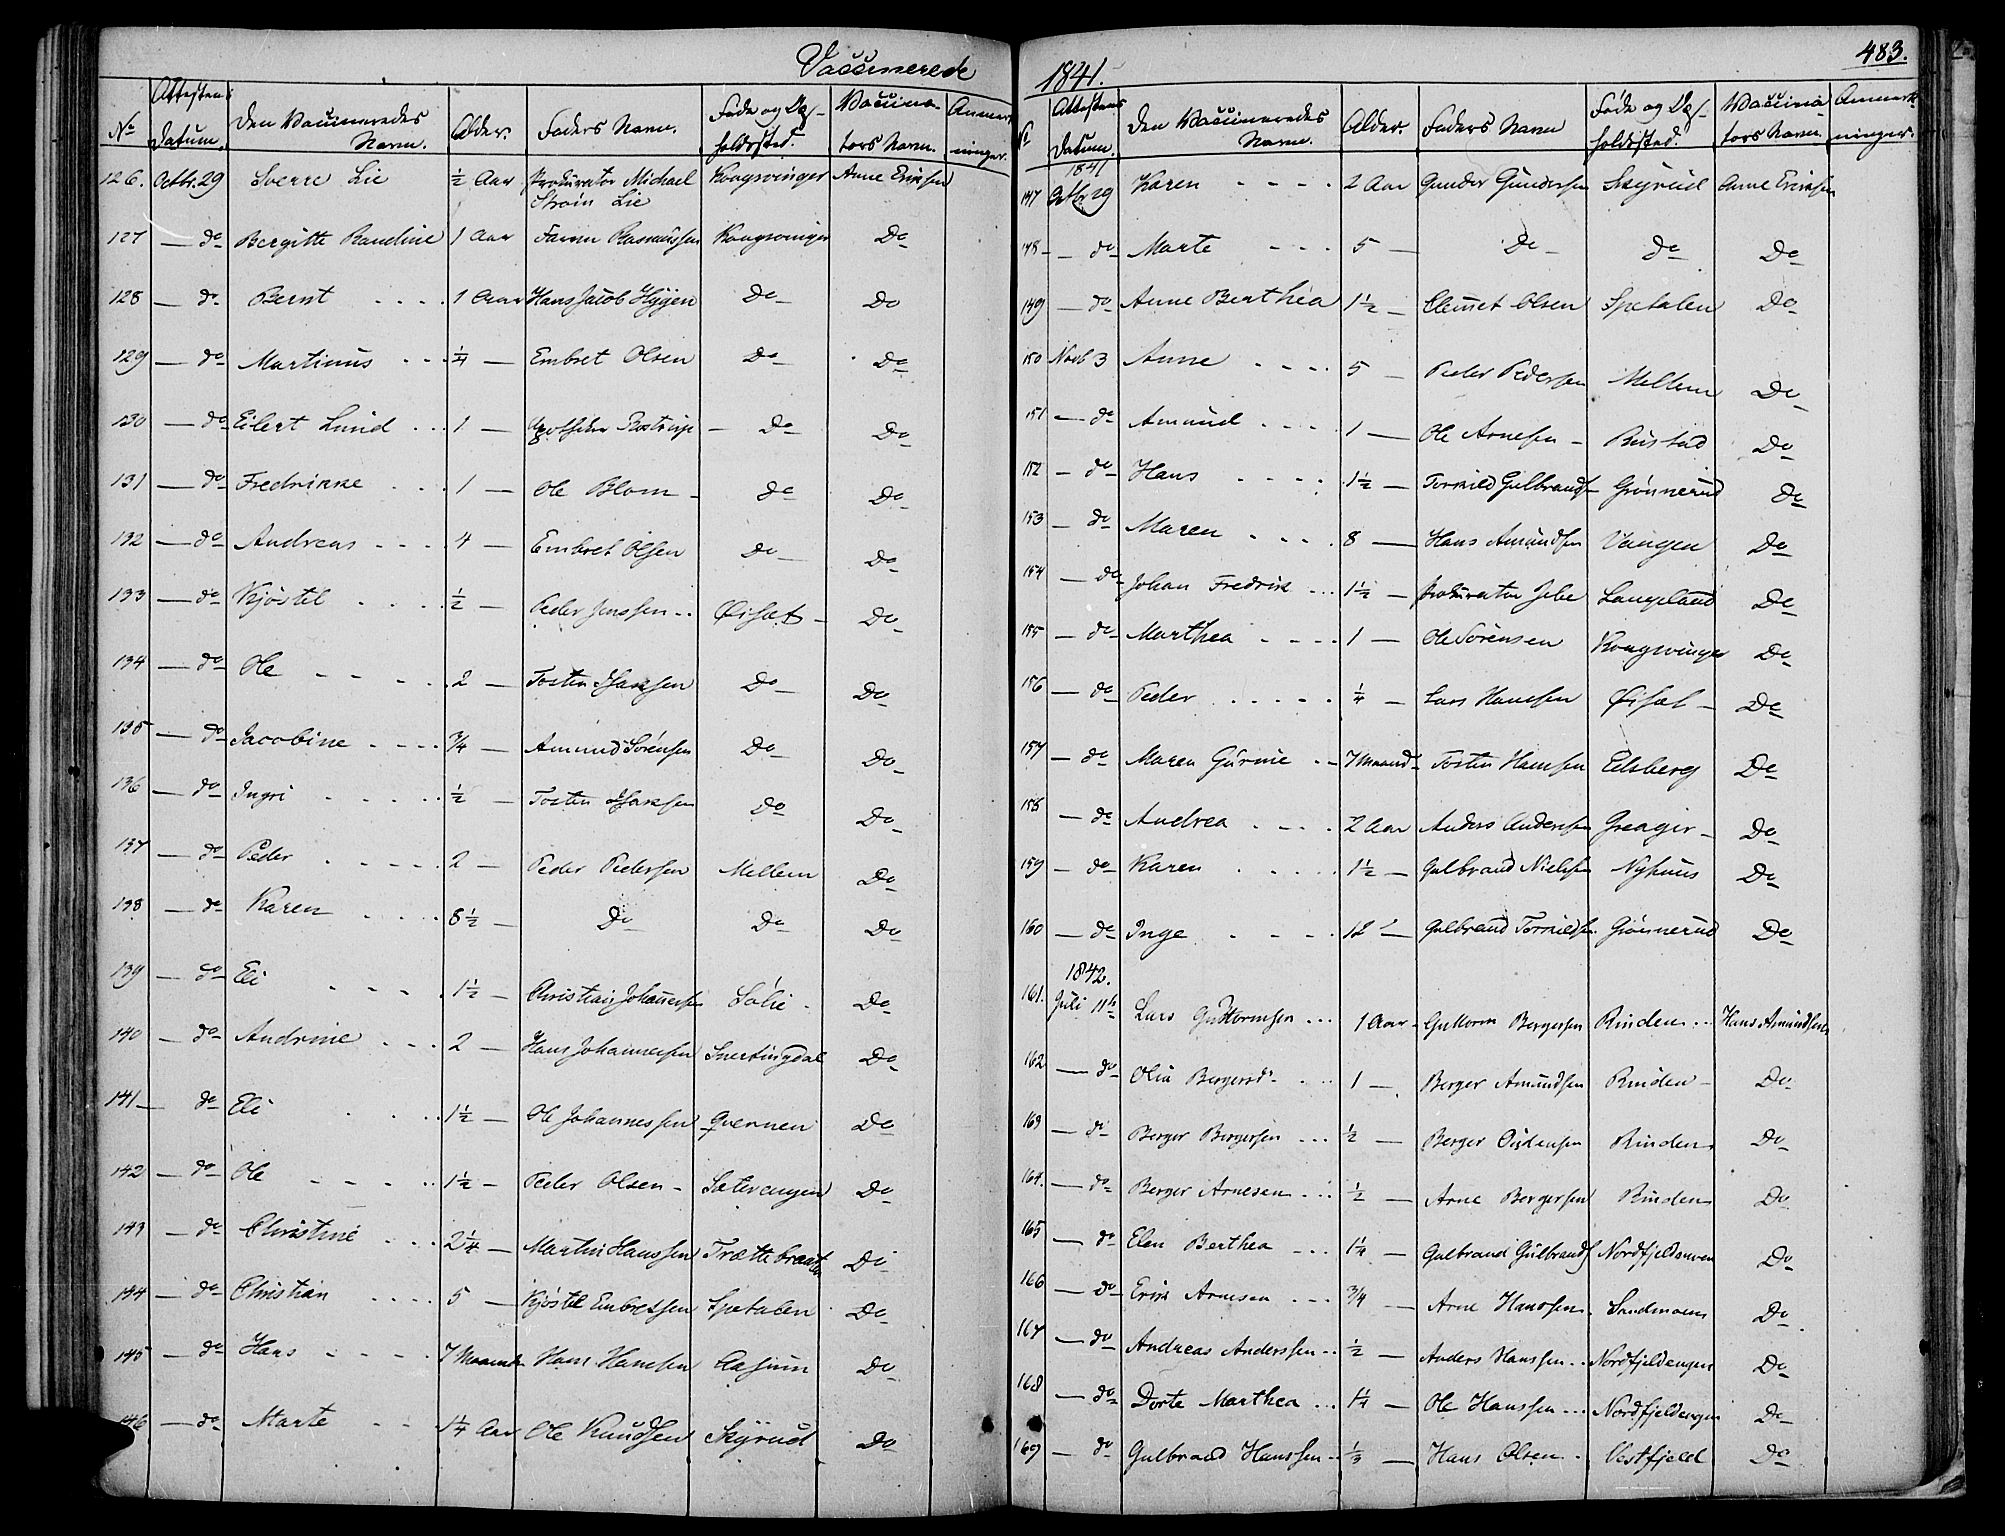 Vaccinerede
No Attestens Datum. Den Vaccineredes Navn. Alder. Faders Navn. Føde og Op-holdssted. Vaccina-tors Navn. Anmærk-ninger.
126. Octbr. 29 Sverre Lie ½ Aar Prokurator Michael Kongsvinger Anne Eriksen
Strøm Lie
127 — do Bergitte Randine 1 Aar Rasmussen Kongsvinger Do
128 — do Bernt 1 Aar Hans Jacob Hÿgen Do Do
129 — do Martinus ¼ — Embret Olsen Do Do
130 — do Eilert Lund 1 — Do Do
131 — do Fredrikke 1 — Ole Blom Do Do
132 — do Andreas 4 — Embret Olsen Do Do
133 — do Kjøstel ½ — Peder Jenssen Øisæt Do
134 — do Ole 2 — Tosten Hanssen Do Do
135 — do Jacobine ¾ — Amund Sørensen Do Do
136 — do Ingri ½ — Tosten Hanssen Do Do
137 — do Peder 2 — Peder Pedersen Mellem Do
138 — do Karen 8½ — Do Do Do
139 — do Eli 1½ — Christian Johannesen Solie Do
140 — do Andrine 2 — Hans Johannesen Snertingdal Do
141 — do Eli 1½ — Ole Johannessen Qvernen Do
142 — do Ole 1½ — Peder Olsen Sæterengen Do
143 — do Christine 2¼ — Martin Hanssen Trættebraaten Do
144 — do Christian 5 — Kjøstel Embretsen Spetalen Do
145 — do Hans 7 Maaneder Hans Hansen Aasum Do
146 — do Marte 1¼ Aar Ole Knudsen Skÿrud Do
1841. 483.
No Attestens Datum. Den Vaccineredes Navn. Alder. Faders Navn Føde og Op-holdssted. Vaccina-tors Navn. Anmærk-ninger.
1841
147 Octbr 29 Karen 2 Aar Gunder Gundersen Skÿrud Anne Eriksen
148 — do Marte 5 — Do do Do
149 — do Anne Berthea 1½ — Clemet Olsen Spetalen Do
150 Novb 3 Anne 5 — Peder Pedersen Mellem Do
151 — do Amund 1 — Ole Arnesen Rustad Do
152 — do Hans 1½ — Torkild Gulbrands Grønnerud Do
153 — do Maren 8 — Hans Amundsen Vangen Do
154 — do Johan Fredrik 1½ — Prokurator Jebe Langeland Do
155 — do Marthea 1 — Ole Sørensen Kongsvinger Do
156 — do Peder ¼ — Lars Hansen Øisæt Do
157 — do Maren Gurine 7 Maand Tosten Hansen Edsberg Do
158 — do Andrea 2 Aar Anders Andersen Greager Do
159 — do Karen 1½ — Gulbrand Nielsen Nyhuus Do
160 — do Inge 12 — Gulbrand Torkildsen Grønnerud Do
1842.
161. Juli 11te Lars Guttormsen 1 Aar Guttorm Bergersen Rinden Hans Amundsen
162 — do Olia Bergersd. 1 — Berger Amundsen Rinden Do
163 — do Berger Bergersen ½ — Berger Rinden Do
164. — do Berger Arnesen ½ — Arne Bergersen Rinden Do
165 — do Elen Berthea 1¼ — Gulbrand Gulbrands Nordfjeldengen Do
166 — do Erik Arnesen ¾ — Arne Hanssen Sandmoen Do
167 — do Andreas Anderssen ½ — Anders Hanssen Nordfjeldengen Do
168 — do Dorte Marthea 1¼ — Ole Hanssen Nordfjeldengen Do
169 — do Gulbrand Hanssen ⅓ — Hans Olsen Vestfjeld Do